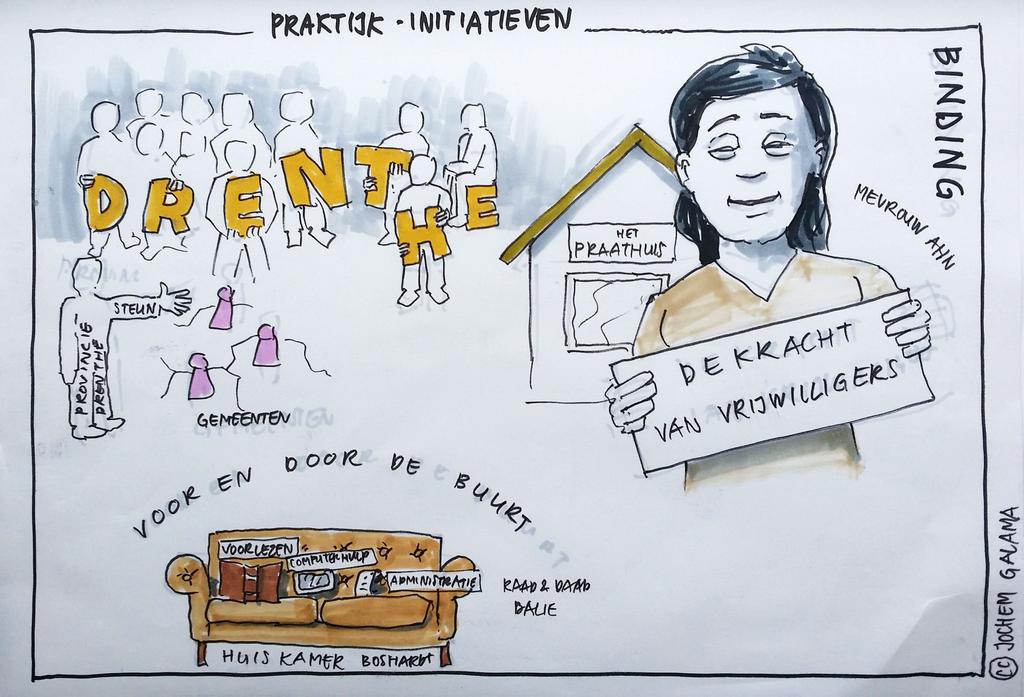 PRAKTIJK - INITIATIEVEN
BINDING
DRENTHE
HET
PRAATHUIS
MEVROUW AHN
STEUN
PROVINCIE
DRENTHE
GEMEENTEN
DE KRACHT
VAN VRIJWILLIGERS
VOOR EN DOOR DE BUURT
VOORLEZEN
COMPUTERHULP
ADMINISTRATIE
RAAD & DAAD
BALIE
HUIS KAMER BOSHARDT
(CC) JOCHEM GALAMA